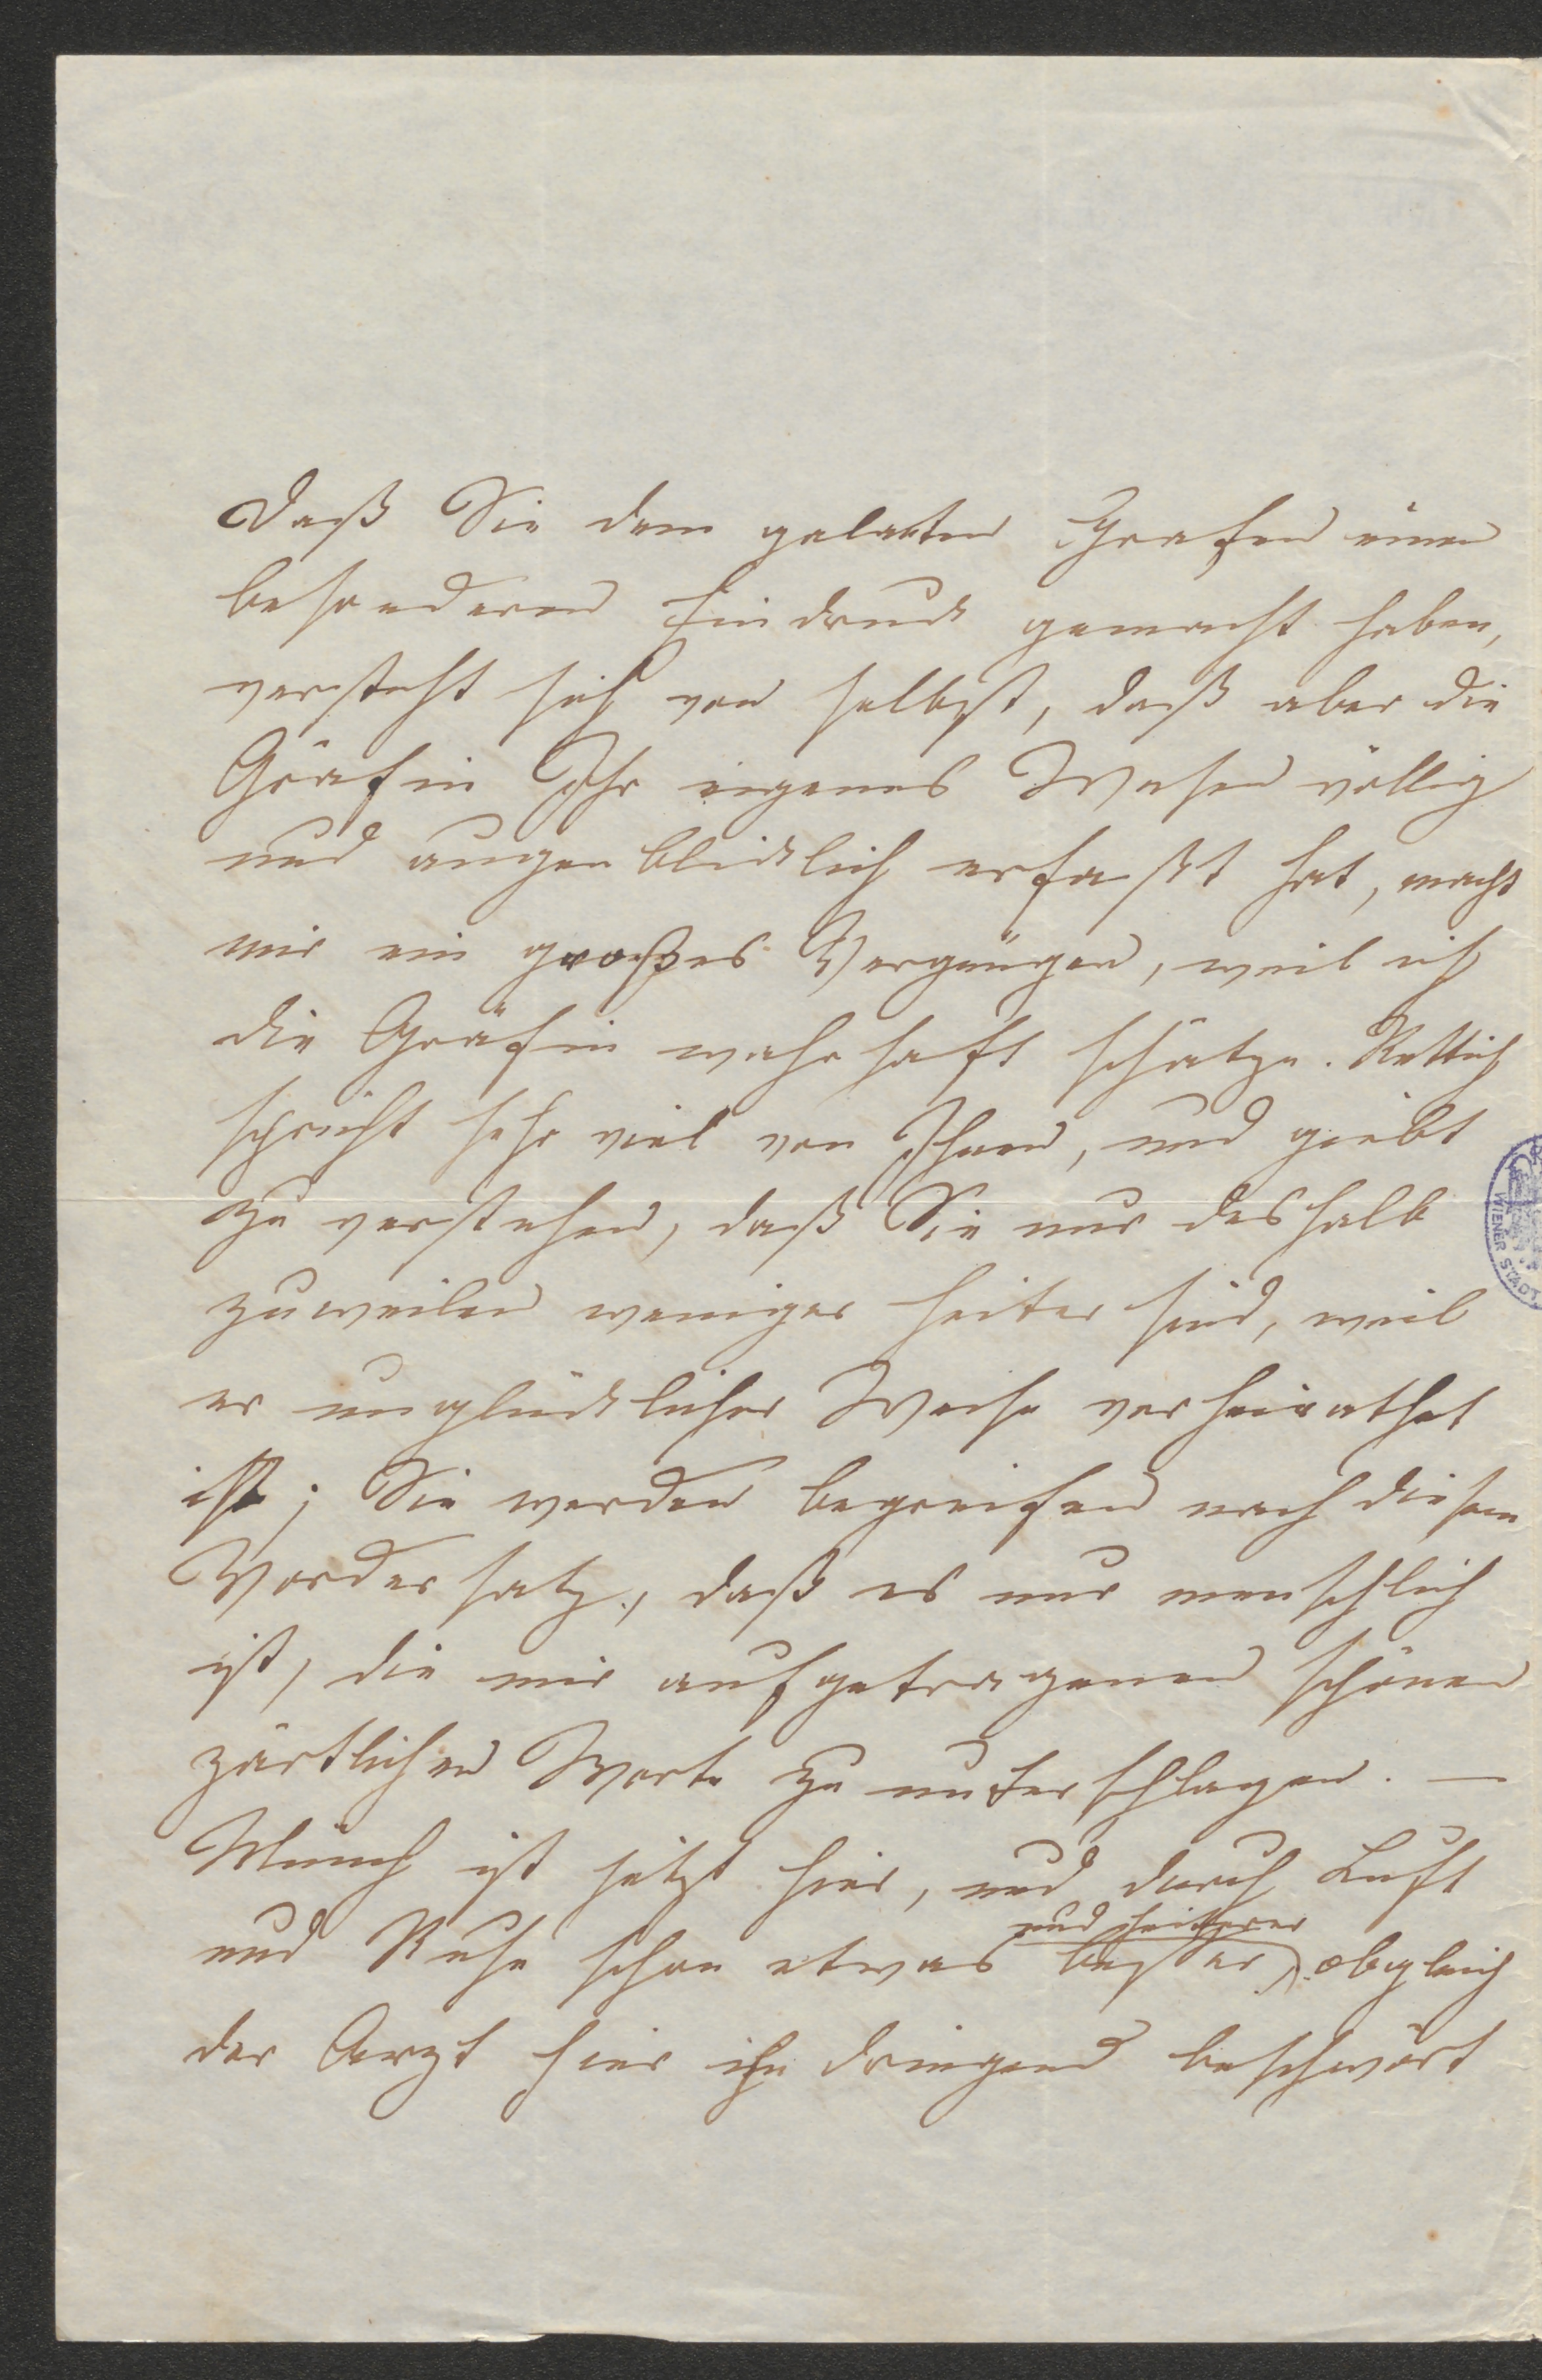 Daß Sie dem galanten Grafen einen
besonderen Eindruck gemacht haben,
versteht sich von selbst, daß aber die
Gräfin Ihr eigenes Wesen völlig
und augenblicklich erfaßt hat, macht
mir ein großes Vergnügen, weil ich
die Gräfin wahrhaft schätze. Rettich
spricht sehr viel von Ihnen, und giebt
zu verstehen, daß Sie nur deshalb
zuweilen weniger heiter sind, weil
er unglücklicher Weise verheirathet
ist; Sie werden begreifen nach diesem
Vordersatz, daß es nur menschlich
ist, die mir aufgetragenen schönen
zärtlichen Worte zu unterschlagen. —
Münch ist jetzt hier, und durch Luft
und heiterer
und Ruhe schon etwas besser, obgleich
der Arzt hier ihn dringend beschwört
WIENER STADT